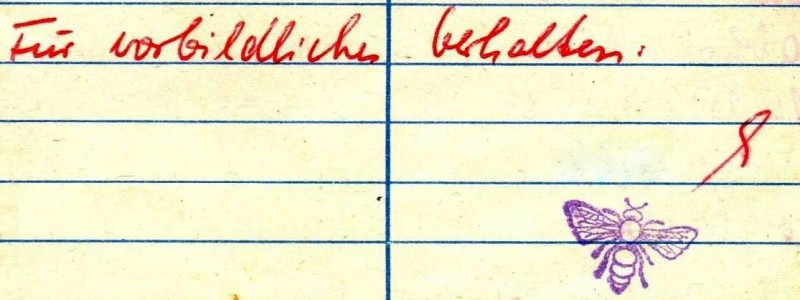 Für vorbildliches Verhalten: